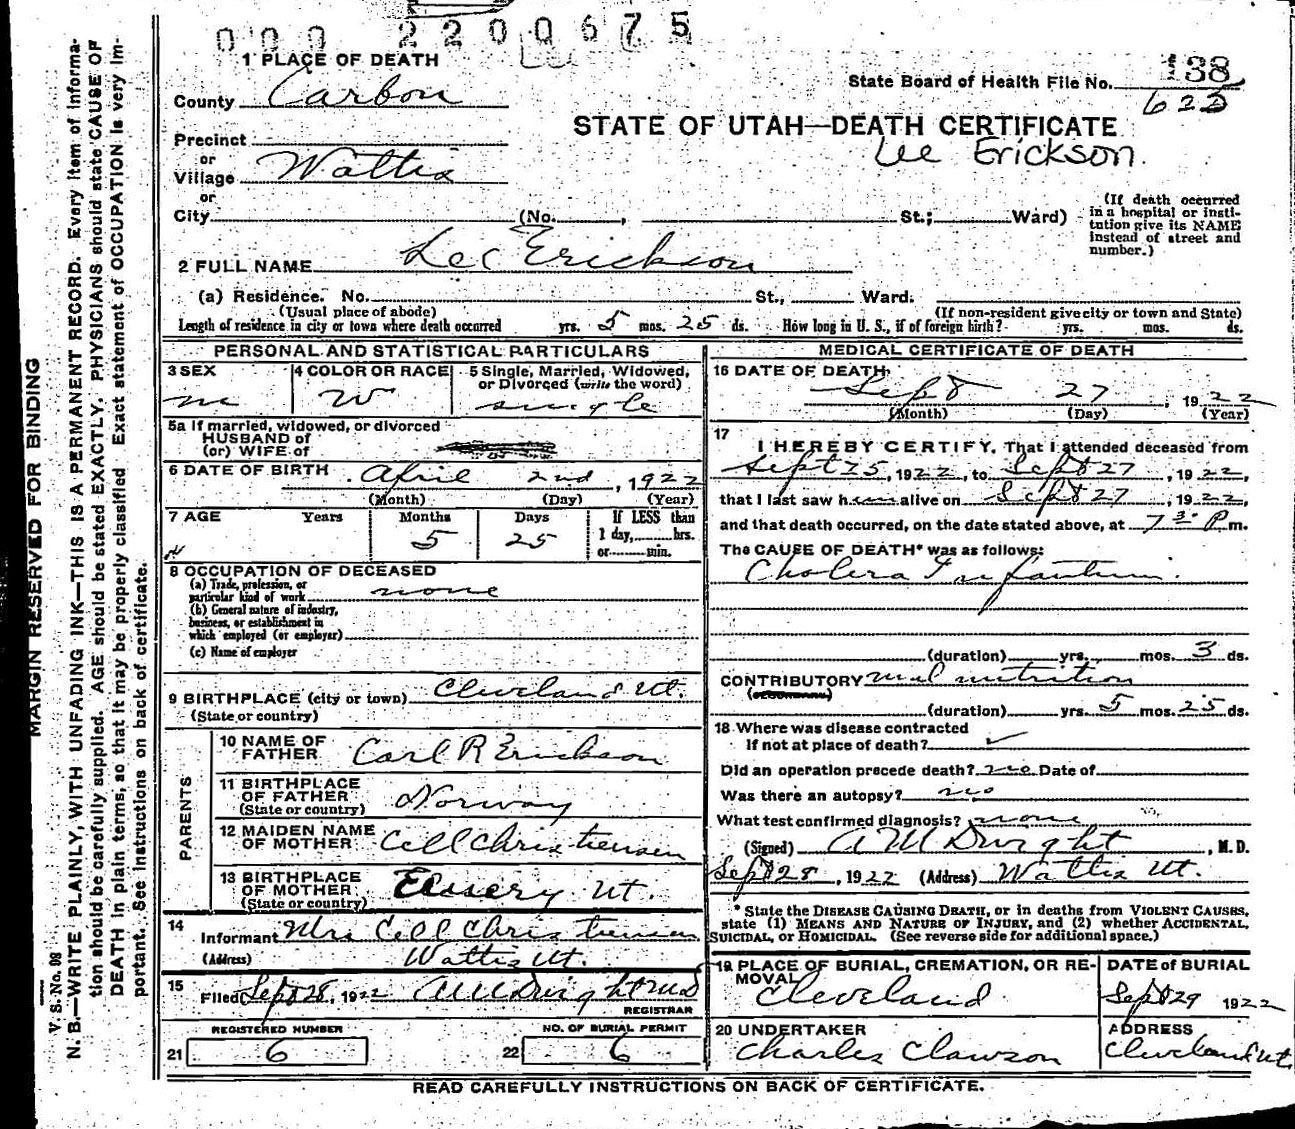 000 2200675
1 PLACE OF DEATH
State Board of Health File No. 38
County Carbon
622
STATE OF UTAH—DEATH CERTIFICATE
Precinct
Lee Erickson.
or
Village Wattis
or
City (No. , St.; Ward)
(If death occurred
in a hospital or insti-
tution give its NAME
instead of street and
number.)
2 FULL NAME Lee Erickson
(a) Residence. No. St., Ward.
(Usual place of abode) (If non-resident give city or town and State)
Length of residence in city or town where death occurred yrs. 5 mos. 25 ds. How long in U. S., if of foreign birth? yrs. mos. ds.
PERSONAL AND STATISTICAL PARTICULARS
3 SEX 4 COLOR OR RACE 5 Single, Married, Widowed,
or Divorced (write the word)
m W single
5a If married, widowed, or divorced
HUSBAND of
(or) WIFE of
6 DATE OF BIRTH April 2nd, 1922
(Month) (Day) (Year)
7 AGE Years Months Days If LESS than
1 day, hrs.
5 25
or min.
8 OCCUPATION OF DECEASED
(a) Trade, profession, or
particular kind of work none
(b) General nature of industry,
business, or establishment in
which employed (or employer)
(c) Name of employer
9 BIRTHPLACE (city or town) Cleveland Ut.
(State or country)
PARENTS
10 NAME OF
FATHER Carl R Erickson
11 BIRTHPLACE
OF FATHER Norway
(State or country)
12 MAIDEN NAME
OF MOTHER Cell Christiensen
13 BIRTHPLACE
OF MOTHER Emery Ut.
(State or country)
14
Informant Mrs Cell Christiensen
(Address) Wattis Ut.
15
Filed Sept 28, 1922 A M Dwight MD
REGISTRAR
REGISTERED NUMBER NO. OF BURIAL PERMIT
21 6 22 6
MEDICAL CERTIFICATE OF DEATH
16 DATE OF DEATH
Sept 27, 1922
(Month) (Day) (Year)
17
I HEREBY CERTIFY, That I attended deceased from
Sept 25, 1922, to Sept 27, 1922,
that I last saw him alive on Sept 27, 1922,
and that death occurred, on the date stated above, at 7 30 P m.
The CAUSE OF DEATH* was as follows:
Cholera Infantum.
(duration) yrs. mos. 3 ds.
CONTRIBUTORY mal nutrition
(duration) yrs. 5 mos. 25 ds.
18 Where was disease contracted
If not at place of death?
Did an operation precede death? no Date of
Was there an autopsy? no
What test confirmed diagnosis? none
(Signed) A M Dwight, M.D.
Sept 28, 1922 (Address) Wattis Ut.
* State the DISEASE CAUSING DEATH, or in deaths from VIOLENT CAUSES,
state (1) MEANS AND NATURE OF INJURY, and (2) whether ACCIDENTAL,
SUICIDAL, or HOMICIDAL. (See reverse side for additional space.)
19 PLACE OF BURIAL, CREMATION, OR RE-
MOVAL
Cleveland
DATE of BURIAL
Sept 29 1922
20 UNDERTAKER
Charles Clawson
ADDRESS
Cleveland Ut.
READ CAREFULLY INSTRUCTIONS ON BACK OF CERTIFICATE.
MARGIN RESERVED FOR BINDING
V. S. No. 98
N. B.—WRITE PLAINLY, WITH UNFADING INK—THIS IS A PERMANENT RECORD. Every item of informa-
tion should be carefully supplied. AGE should be stated EXACTLY. PHYSICIANS should state CAUSE OF
DEATH in plain terms, so that it may be properly classified. Exact statement of OCCUPATION is very im-
portant. See instructions on back of certificate.